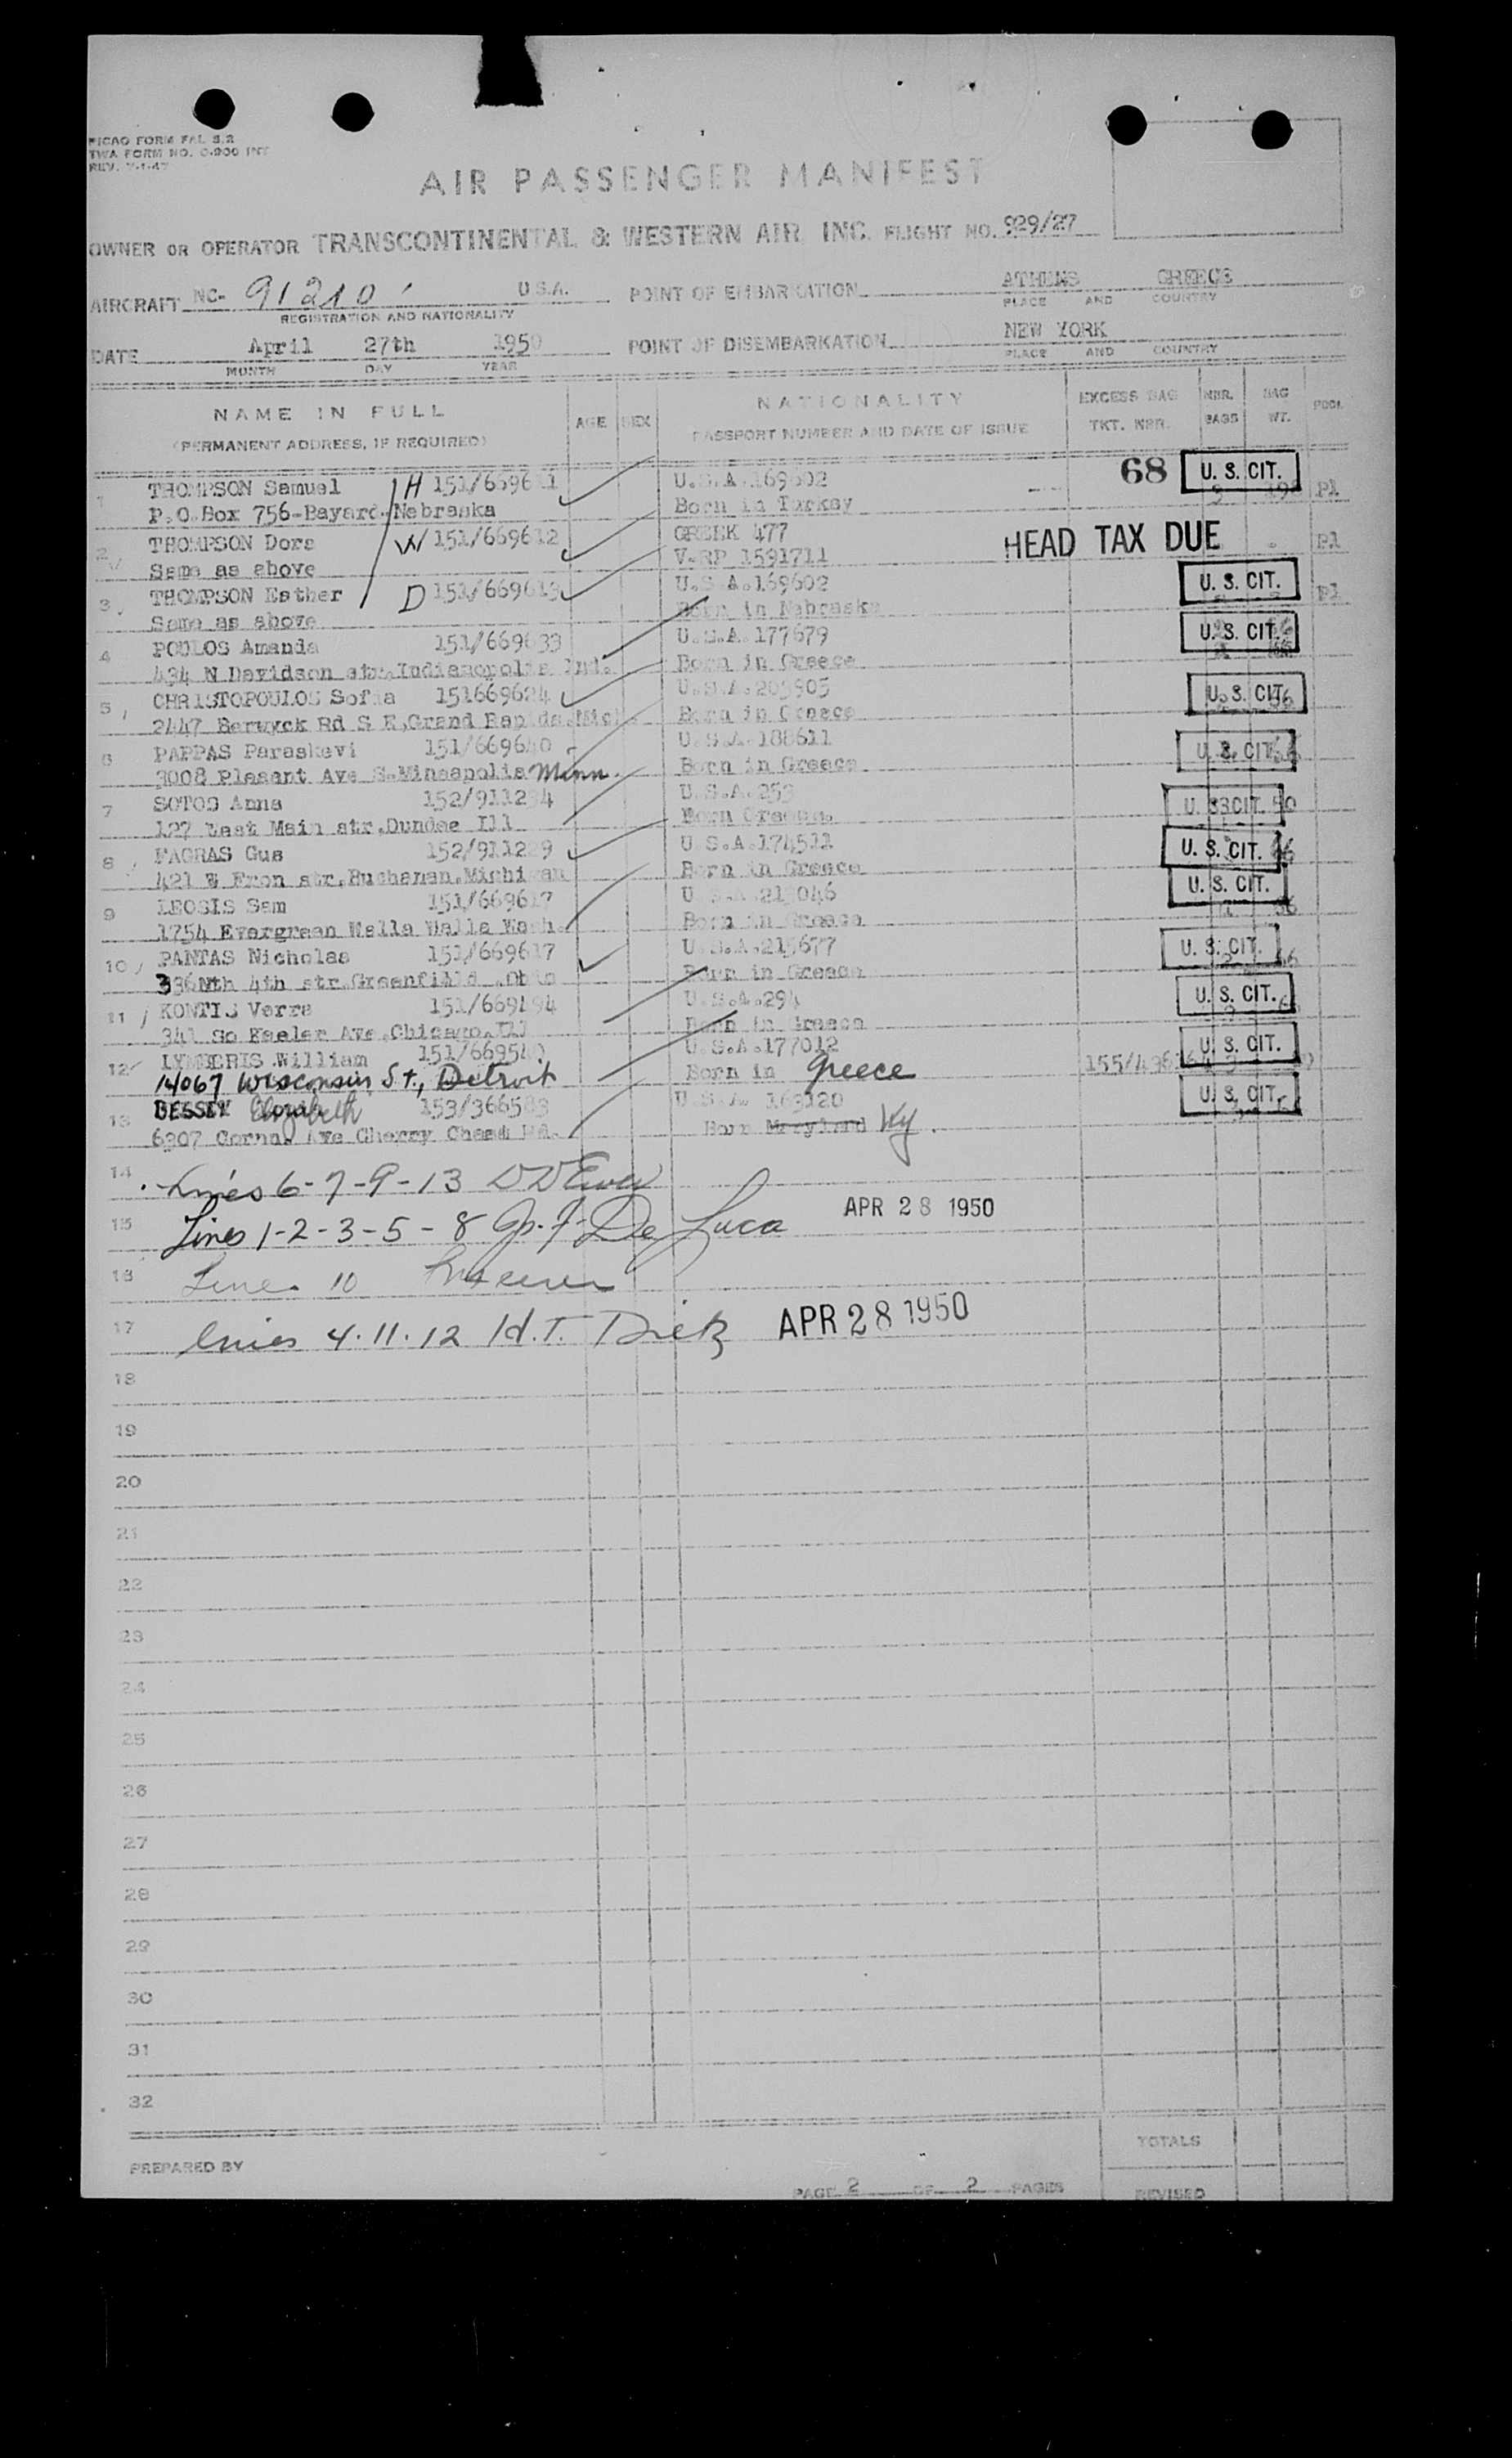 PICAO FORM FAL 5.2
TWA FORM NO. O-200 INT
REV. 7-1-47
AIR PASSENGER MANIFEST
OWNER OR OPERATOR TRANSCONTINENTAL & WESTERN AIR INC. FLIGHT NO. 929/27
AIRCRAFT NC- 91210 U.S.A. POINT OF EMBARKATION ATHENS GREECE
REGISTRATION AND NATIONALITY PLACE AND COUNTRY
DATE April 27th 1950 POINT OF DISEMBARKATION NEW YORK
MONTH DAY YEAR PLACE AND COUNTRY
NAME IN FULL AGE SEX NATIONALITY EXCESS BAG NBR. BAG POOL
(PERMANENT ADDRESS, IF REQUIRED) PASSPORT NUMBER AND DATE OF ISSUE TKT. NBR. BAGS WT.
1 THOMPSON Samuel H 151/669611 U.S.A. 169602 68 U. S. CIT. Pl
P.O.Box 756-Bayard.Nebraska Born in Turkey
2 THOMPSON Dora W 151/669612 GREEK 477 HEAD TAX DUE Pl
Same as above V.RP 1591711
3 THOMPSON Esther D 151/669613 U.S.A.169602 U. S. CIT. Pl
Same as above Born in Nebraska
4 POULOS Amanda 151/669633 U.S.A. 177679 U. S. CIT.
434 N Davidson str.Indianopolis Ind. Born in Greece
5 CHRISTOPOULOS Sofia 151669624 U.S.A. U. S. CIT.
2447 Berwyck Rd S E,Grand Rapids.Mich. Born in Greece
6 PAPPAS Paraskevi 151/669640 U.S.A. 188611 U. S. CIT.
3008 Plesant Ave S.Mineapolis Minn. Born in Greece
7 SOTOS Anna 152/911234 U.S.A. 253 U. S. CIT.
127 East Main str.Dundee Ill Born Greece.
8 FAGRAS Gus 152/911229 U.S.A.174511 U. S. CIT.
421 W Fron str.Buchanan.Michigan Born in Greece
9 LEOSIS Sam 151/669617 U.S.A. U. S. CIT.
1754 Evergreen Walla Walla Wash. Born in Greece
10 PANTAS Nicholas 151/669617 U.S.A.215677 U. S. CIT.
336 Nth 4th str.Greenfiild .Ohio Born in Greece
11 KONTIS Verra 151/669494 U.S.A.294 U. S. CIT.
341 So Keeler Ave.Chicago.Ill Born in Greece
12 William U.S.A.177012 U. S. CIT.
14067 Wisconsin St., Detroit Born in Greece
13 BESSEY Elizabeth U.S.A. 163120 U. S. CIT.
6307 Ave Cherry Born Maryland Ky.
14 Lines 6-7-9-13
15 Lines 1-2-3-5-8 De Luca APR 28 1950
16 Line 10
17 Lines 4.11.12 H.T. Dietz APR 28 1950
18
19
20
21
22
23
24
25
26
27
28
29
30
31
32
TOTALS
PREPARED BY
PAGE 2 OF 2 PAGES REVISED